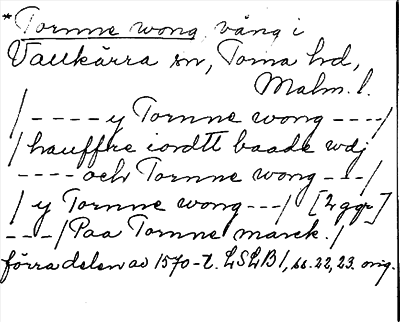 *Tornne wong, vång i
Vallkärra sn, Torna hd,
Malm. l.
/ - - - - y Tornne wong - - - -/
/ hauffre iordtt baade wdj
- - - - och Tornne wong - - - /
/ y Tornne wong - - - / [2 ggr]
- - - / Paa Tornne marck. /
förra delen av 1570-t. LSLB 1, ss. 22, 23. orig.